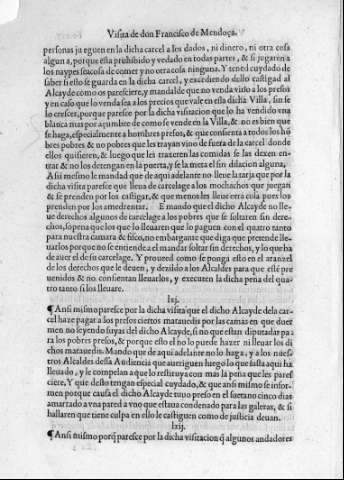 Visita de don Francisco de Mendoça.
personas jueguen en la dicha carcel a los dados, ni dinero, ni otra cosa
alguna, porque esta prohibido y vedado en todas partes, & si jugaren a
los naypes sea cosa de comer y no otra cosa ninguna. Y tened cuydado de
saber si esto se guarda en la dicha carcel, y excediendo dello castigad al
Alcayde como os paresciere, y mandalde que no venda vino a los presos
y en caso que lo venda sea a los precios que vale en essa dicha Villa, sin se
lo crescer, porque paresce por la dicha visitacion que lo ha vendido vna
blanca mas por açumbre de como se vende en la Villa, & no es bien que
se haga, especialmente a hombres presos, & que consienta a todos los hõ
bres pobres & no pobres que les trayan vino de fuera de la carcel donde
ellos quisieren, & luego que les traxeren las comidas se las dexen en-
trar & no los detengan en la puerta, y se la meta el sin dilacion alguna.
Assi mesmo le mandad que de aqui adelante no lleue la tarja que por la
dicha visita paresce que lleua de carcelage a los mochachos que juegan
& se prenden por los castigar, & que menos les lleue otra cosa pues los
prenden por los amedrentar. E mando que el dicho Alcayde no lle-
ue derechos algunos de carcelage a los pobres que se soltaren sin dere-
chos, so pena que los que lo lleuaren que lo paguen con el quatro tanto
para nuestra camara & fisco, no embargante que diga que pretende lle-
uarlos porque no se entiende a el mandar soltar sin derechos, y lo que ha
de auer el de su carcelage. Y proueed como se ponga esto en el aranzel
de los derechos que le deuen, y dezildo a los Alcaldes para que esté pre
uenidos & no consientan lleuarlos, y executen la dicha pena del qua-
tro tanto si los lleuare.
lxj.
¶ Ansi mismo paresce por la dicha visita que el dicho Alcayde dela car-
cel haze pagar a los presos ciertos marauedis por las camas en que duer
men no leyendo suyas del dicho Alcayde, si no que estan diputadas pa
ra los pobres presos, & porque esto el no lo puede hazer ni lleuar los di
chos marauedis. Mando que de aqui adelante no lo haga, y a los nues-
tros Alcaldes dessa Audiencia que aueriguen luego lo que hasta aqui ha
lleuado, y le compelan a que lo restituya con mas la pena que les pares
ciere, Y que desto tengan especial cuydado, & que ansi mismo se infor-
men porque causa el dicho Alcayde tuuo preso en el sactano cinco dias
amarrado a vna pared a vno que estaua condenado para las galeras, & si
hallaren que tiene culpa en esso le castiguen como de justicia deuan.
lxij.
¶ Ansi mismo porq̃ paresce por la dicha visitacion q̃ algunos andadores